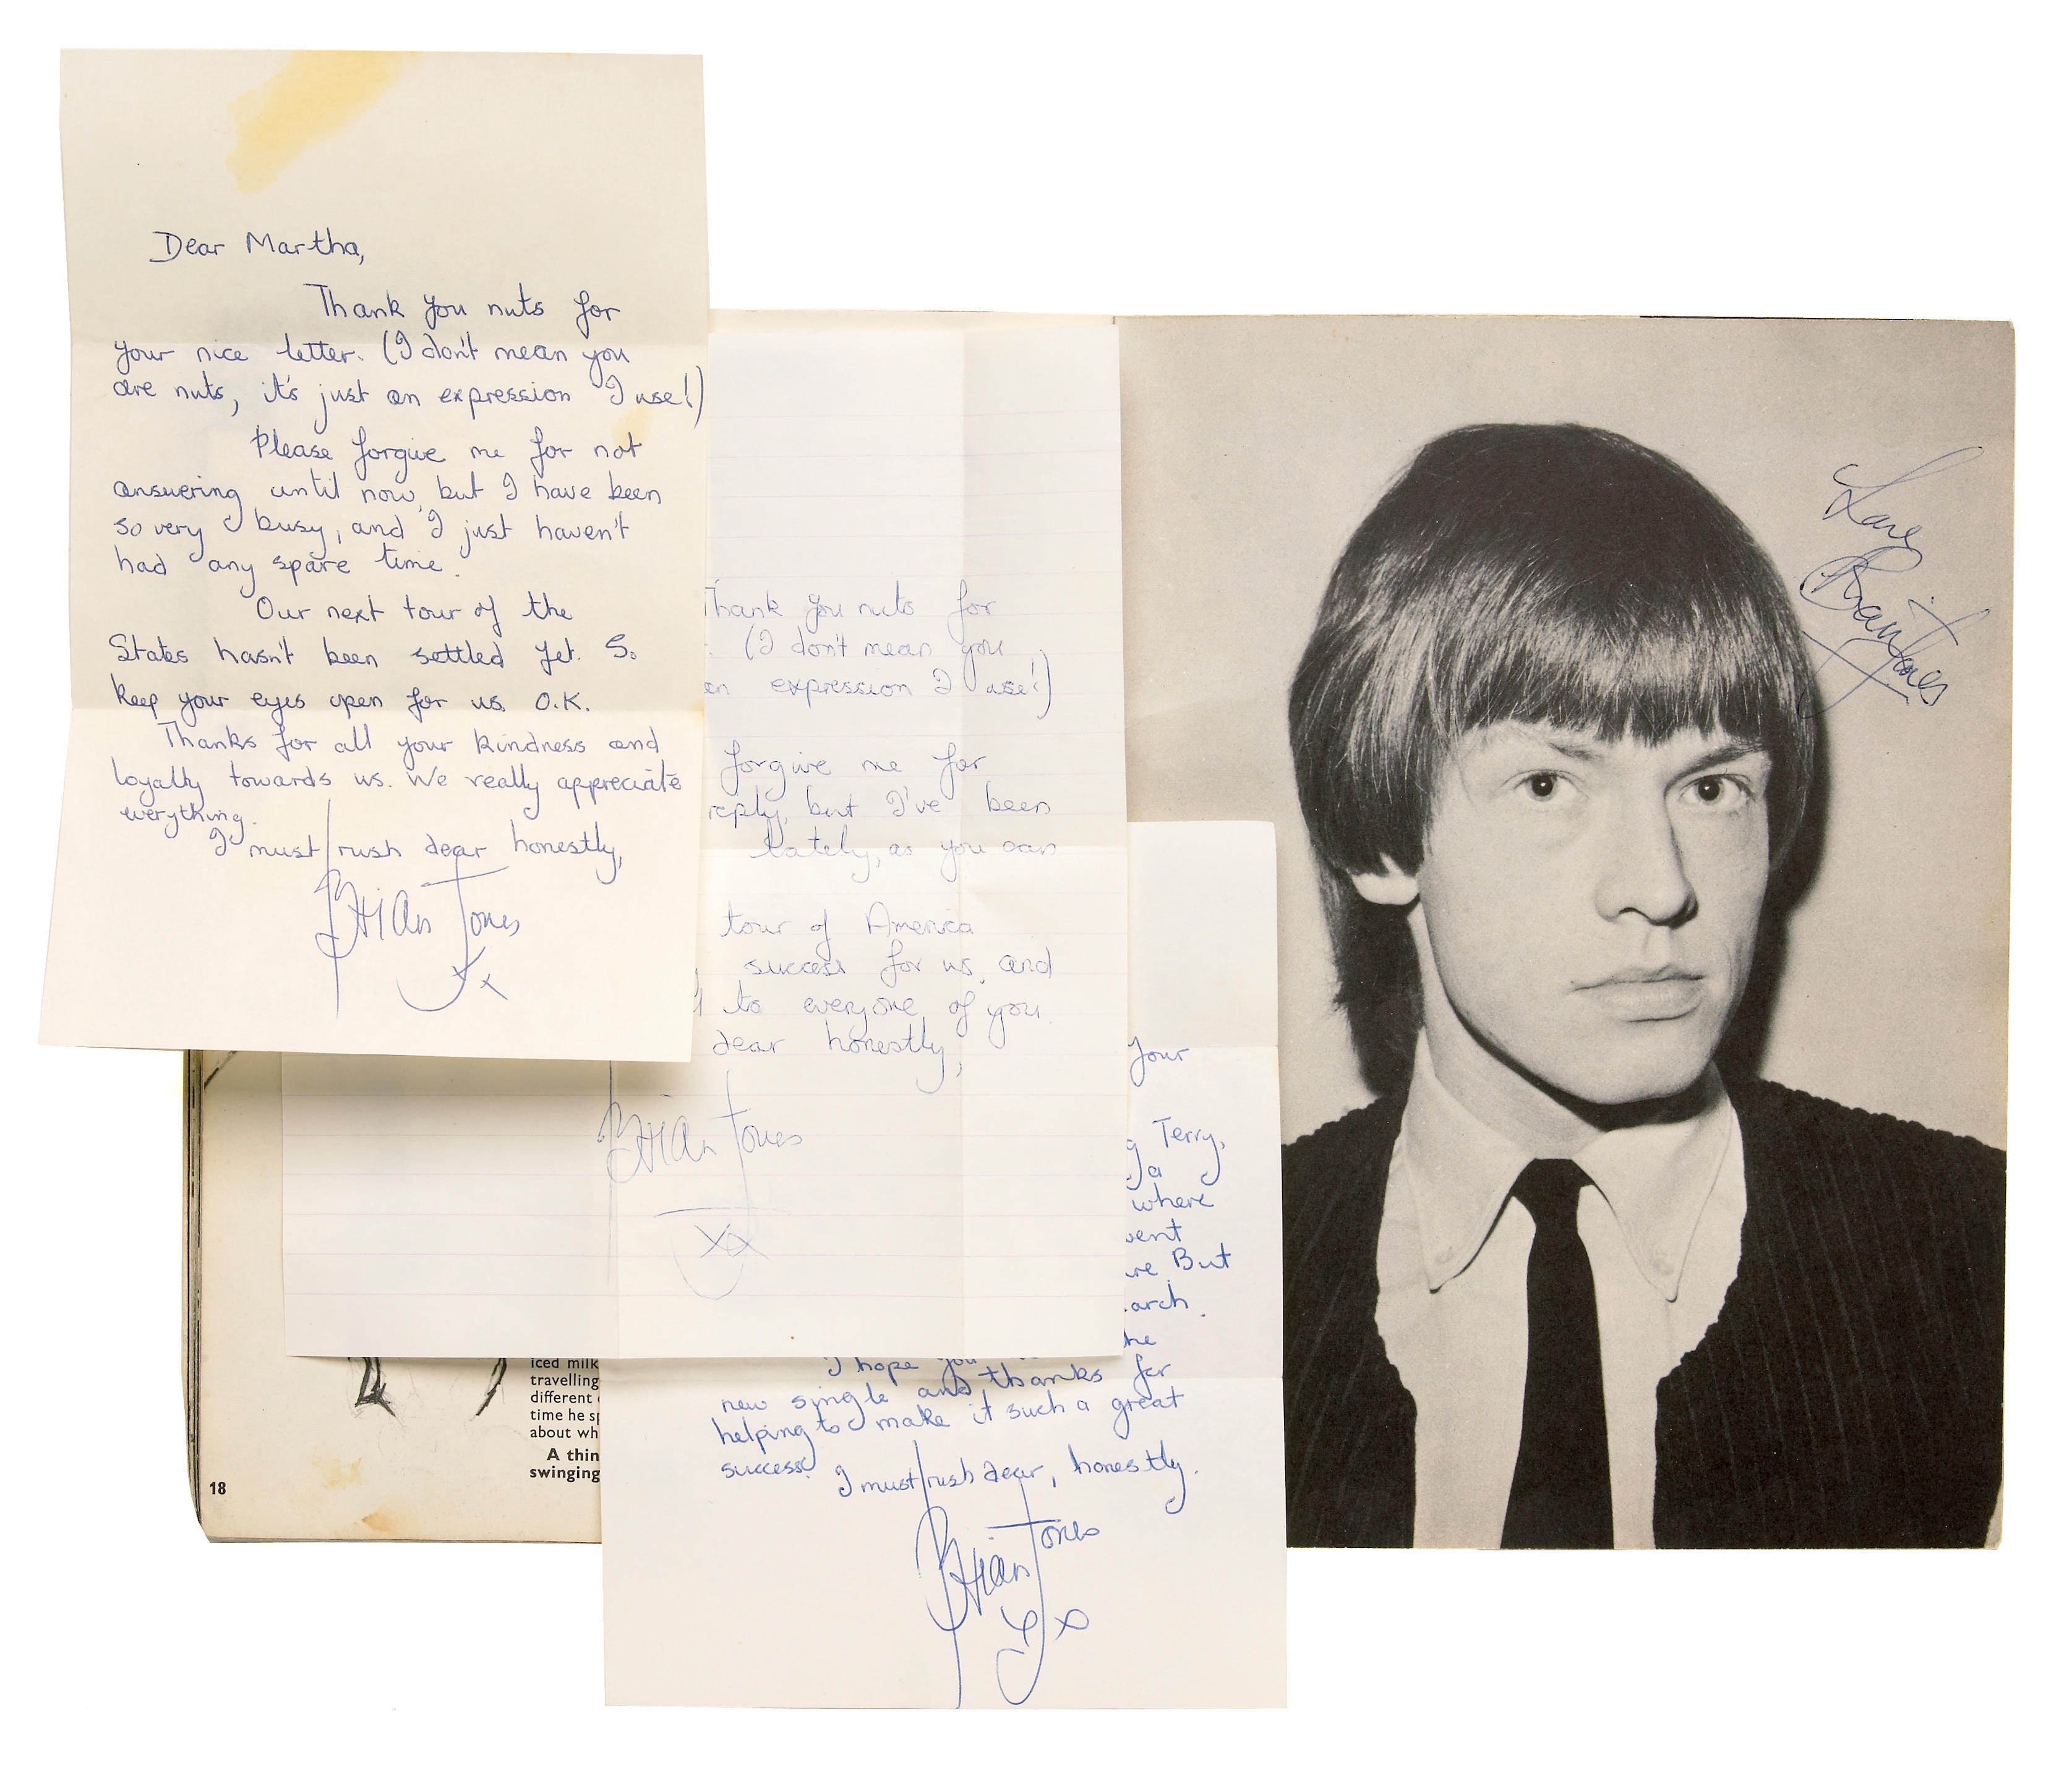 Dear Martha,
Thank you nuts for
your nice letter. (I don't mean you
are nuts, it's just an expression I use!)
Please forgive me for not
answering until now, but I have been
so very busy, and I just haven't
had any spare time.
Our next tour of the
States hasn't been settled yet. So
keep your eyes open for us. O.K.
Thanks for all your kindness and
loyalty towards us. We really appreciate
everything.
I must rush dear honestly,
Brian Jones
xx
Thank you nuts for
(I don't mean you
expression I use!)
forgive me for
reply, but I've been
lately, as you can
tour of America
success for us, and
to everyone of you.
dear honestly,
Brian Jones
xx
your
Terry,
a
where
But
I hope you
new single and thanks for
helping to make it such a great
success.
I must rush dear, honestly.
Brian Jones
xx
iced milk
travelling
different
time he
about
A
swinging
18
Love
Brian Jones